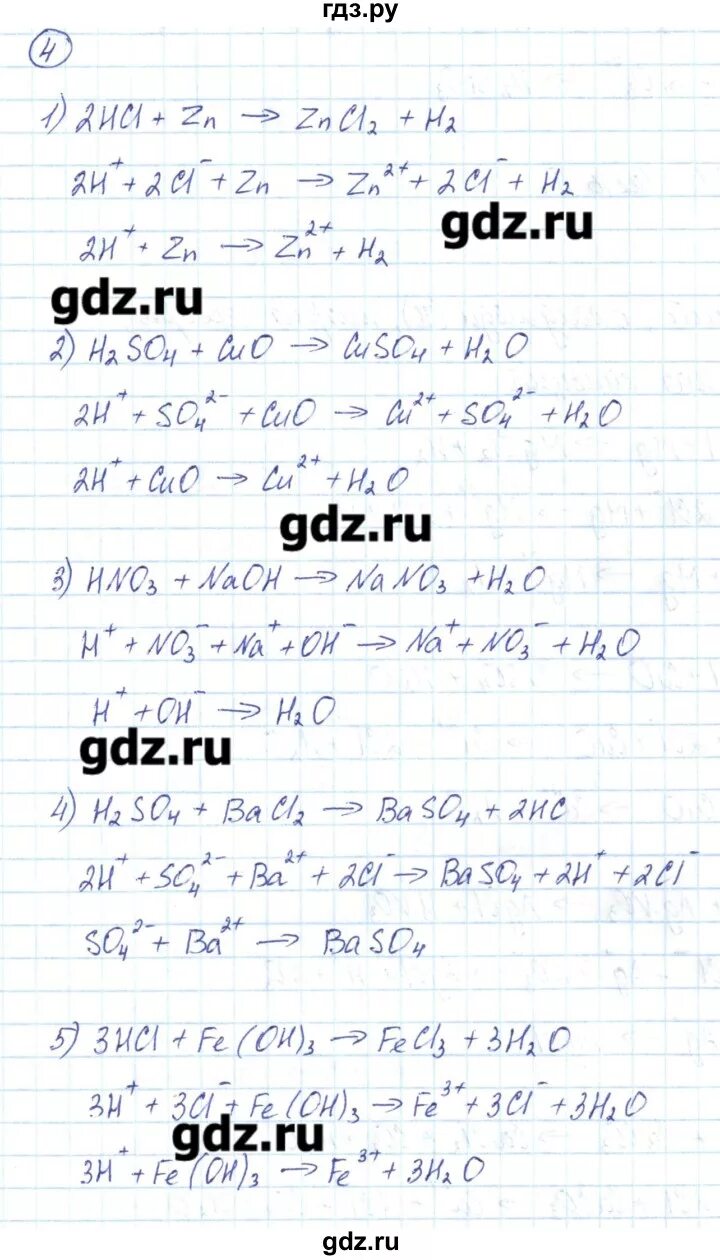 гдз.ру
4
1) 2HCl + Zn → ZnCl₂ + H₂
2H⁺ + 2Cl⁻ + Zn → Zn²⁺ + 2Cl⁻ + H₂
gdz.ru
2H⁺ + Zn → Zn²⁺ + H₂
gdz.ru
2) H₂SO₄ + CuO → CuSO₄ + H₂O
2H⁺ + SO₄²⁻ + CuO → Cu²⁺ + SO₄²⁻ + H₂O
2H⁺ + CuO → Cu²⁺ + H₂O
gdz.ru
3) HNO₃ + NaOH → NaNO₃ + H₂O
H⁺ + NO₃⁻ + Na⁺ + OH⁻ → Na⁺ + NO₃⁻ + H₂O
H⁺ + OH⁻ → H₂O
gdz.ru
4) H₂SO₄ + BaCl₂ → BaSO₄ + 2HC
2H⁺ + SO₄²⁻ + Ba²⁺ + 2Cl⁻ → BaSO₄ + 2H⁺ + 2Cl⁻
SO₄²⁻ + Ba²⁺ → BaSO₄
5) 3HCl + Fe(OH)₃ → FeCl₃ + 3H₂O
3H⁺ + 3Cl⁻ + Fe(OH)₃ → Fe³⁺ + 3Cl⁻ + 3H₂O
gdz.ru
3H⁺ + Fe(OH)₃ → Fe³⁺ + 3H₂O
гдз.ру